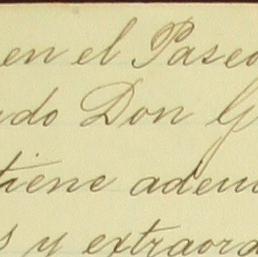 en el Paseo
ado Don G
tiene adem
s y extraord